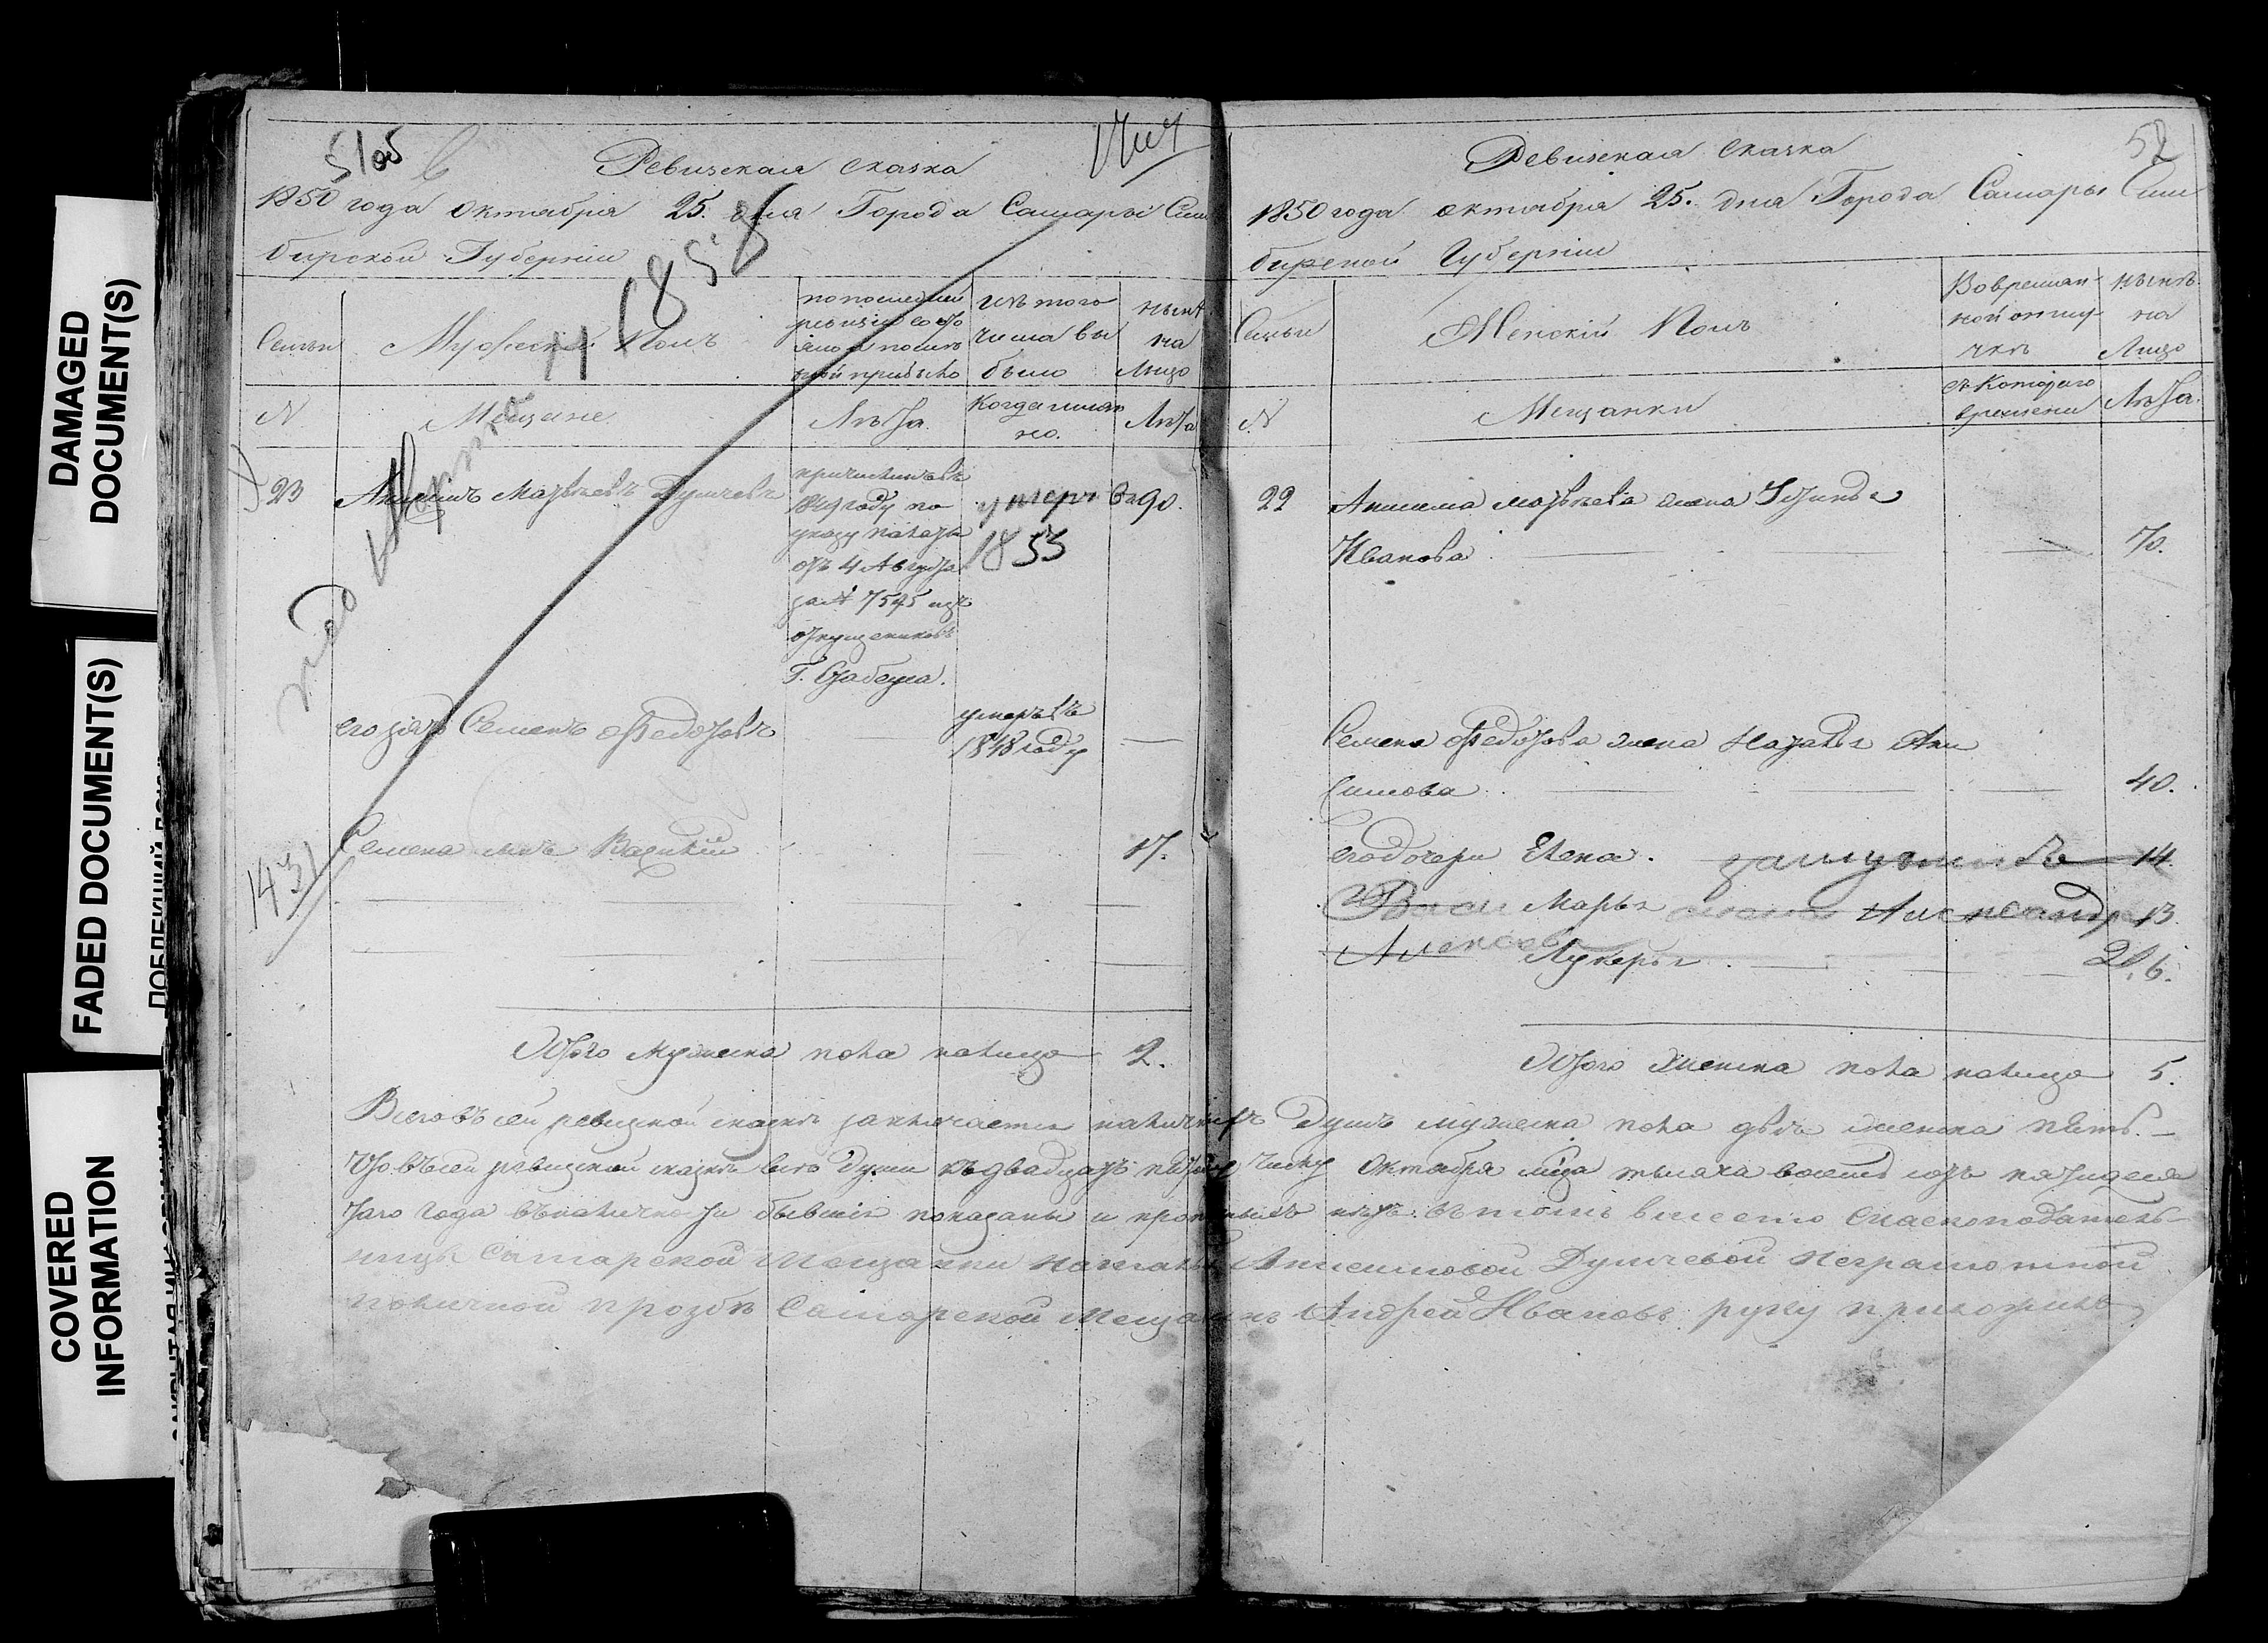 DAMAGED
DOCUMENT(S)
FADED DOCUMENT(S)
COVERED
INFORMATION
51 об
Ревизская сказка
1850 года октября 25. дня Города Самары Сим
бирской Губерніи
1858
Семьи
Мужескій Полъ
по последней
ревизіи состо
яло и после
оной прибыло
изъ того
числа вы
было
нынѣ
на
Лицо
N
Мещане
Лѣта
Когда имян
но.
Лѣта
23
Анисимъ Матвѣевъ
причисленъ въ
1849 году по
указу палаты
отъ 4 Августа
за № 7545 изъ
отпущениковъ
умеръ въ
1853
90.
его зять Семенъ Федотовъ
умеръ въ
1848 году
Семена сынъ Василій
17.
1431
Итого мужеска пола налицо 2.
52
Ревизская сказка
1850 года октября 25. дня Города Самары Сим
бирской Губерніи
Семьи
Женскій Полъ
Во времян
ной отлу
чкѣ
нынѣ
на
Лицо
N
Мещанки
съ Которого
времени
Лѣта.
22
Анисима Матвѣева жена Устинья
Ивановa 70.
Семена Федотова жена Наталья Ани
симова 40.
его дочери Елена. замужемъ 14
Марья Александр 13
Лукерья 6.
Итого женска пола налицо 5.
Всего въ сей ревизской сказкѣ заключается наличныхъ Душъ мужеска пола двѣ женска пять.
Что въ сей ревизской сказкѣ всѣ Души къ двадцать пятому числу Октября мца тысяча восемь сотъ пятидеся
таго года въ наличности бывшія показаны и прописныхъ нѣтъ. въ томъ вместо Сказкоподатель
ницы Самарской Мещанки Натальи Анисимовой Душевой неграмотной
по личной прозбѣ Самарской Мещанинъ Андрей Ивановъ руку приложилъ